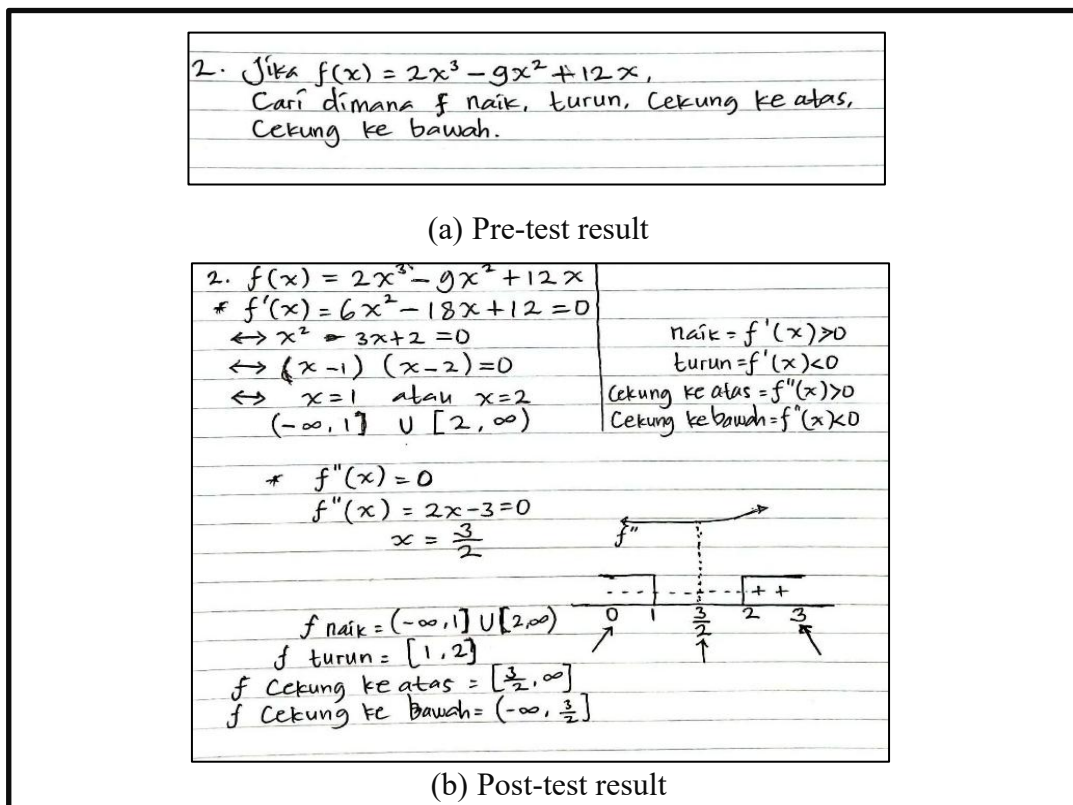 2. Jika f(x) = 2x³ - 9x² + 12x,
Cari dimana f naik, turun, Cekung ke atas,
Cekung ke bawah.
(a) Pre-test result
2. f(x) = 2x³ - 9x² + 12x
* f'(x) = 6x² - 18x + 12 = 0
↔ x² - 3x + 2 = 0
↔ (x - 1) (x - 2) = 0
↔ x = 1 atau x = 2
(-∞, 1] ∪ [2, ∞)
naik = f'(x) > 0
turun = f'(x) < 0
Cekung ke atas = f"(x) > 0
Cekung ke bawah = f"(x) < 0
* f"(x) = 0
f"(x) = 2x - 3 = 0
x = 3/2
f"
- - - - - - - - - - + +
0 1 3/2 2 3
f naik = (-∞, 1] ∪ [2, ∞)
f turun = [1, 2]
f Cekung ke atas = [3/2, ∞]
f Cekung ke bawah = (-∞, 3/2]
(b) Post-test result